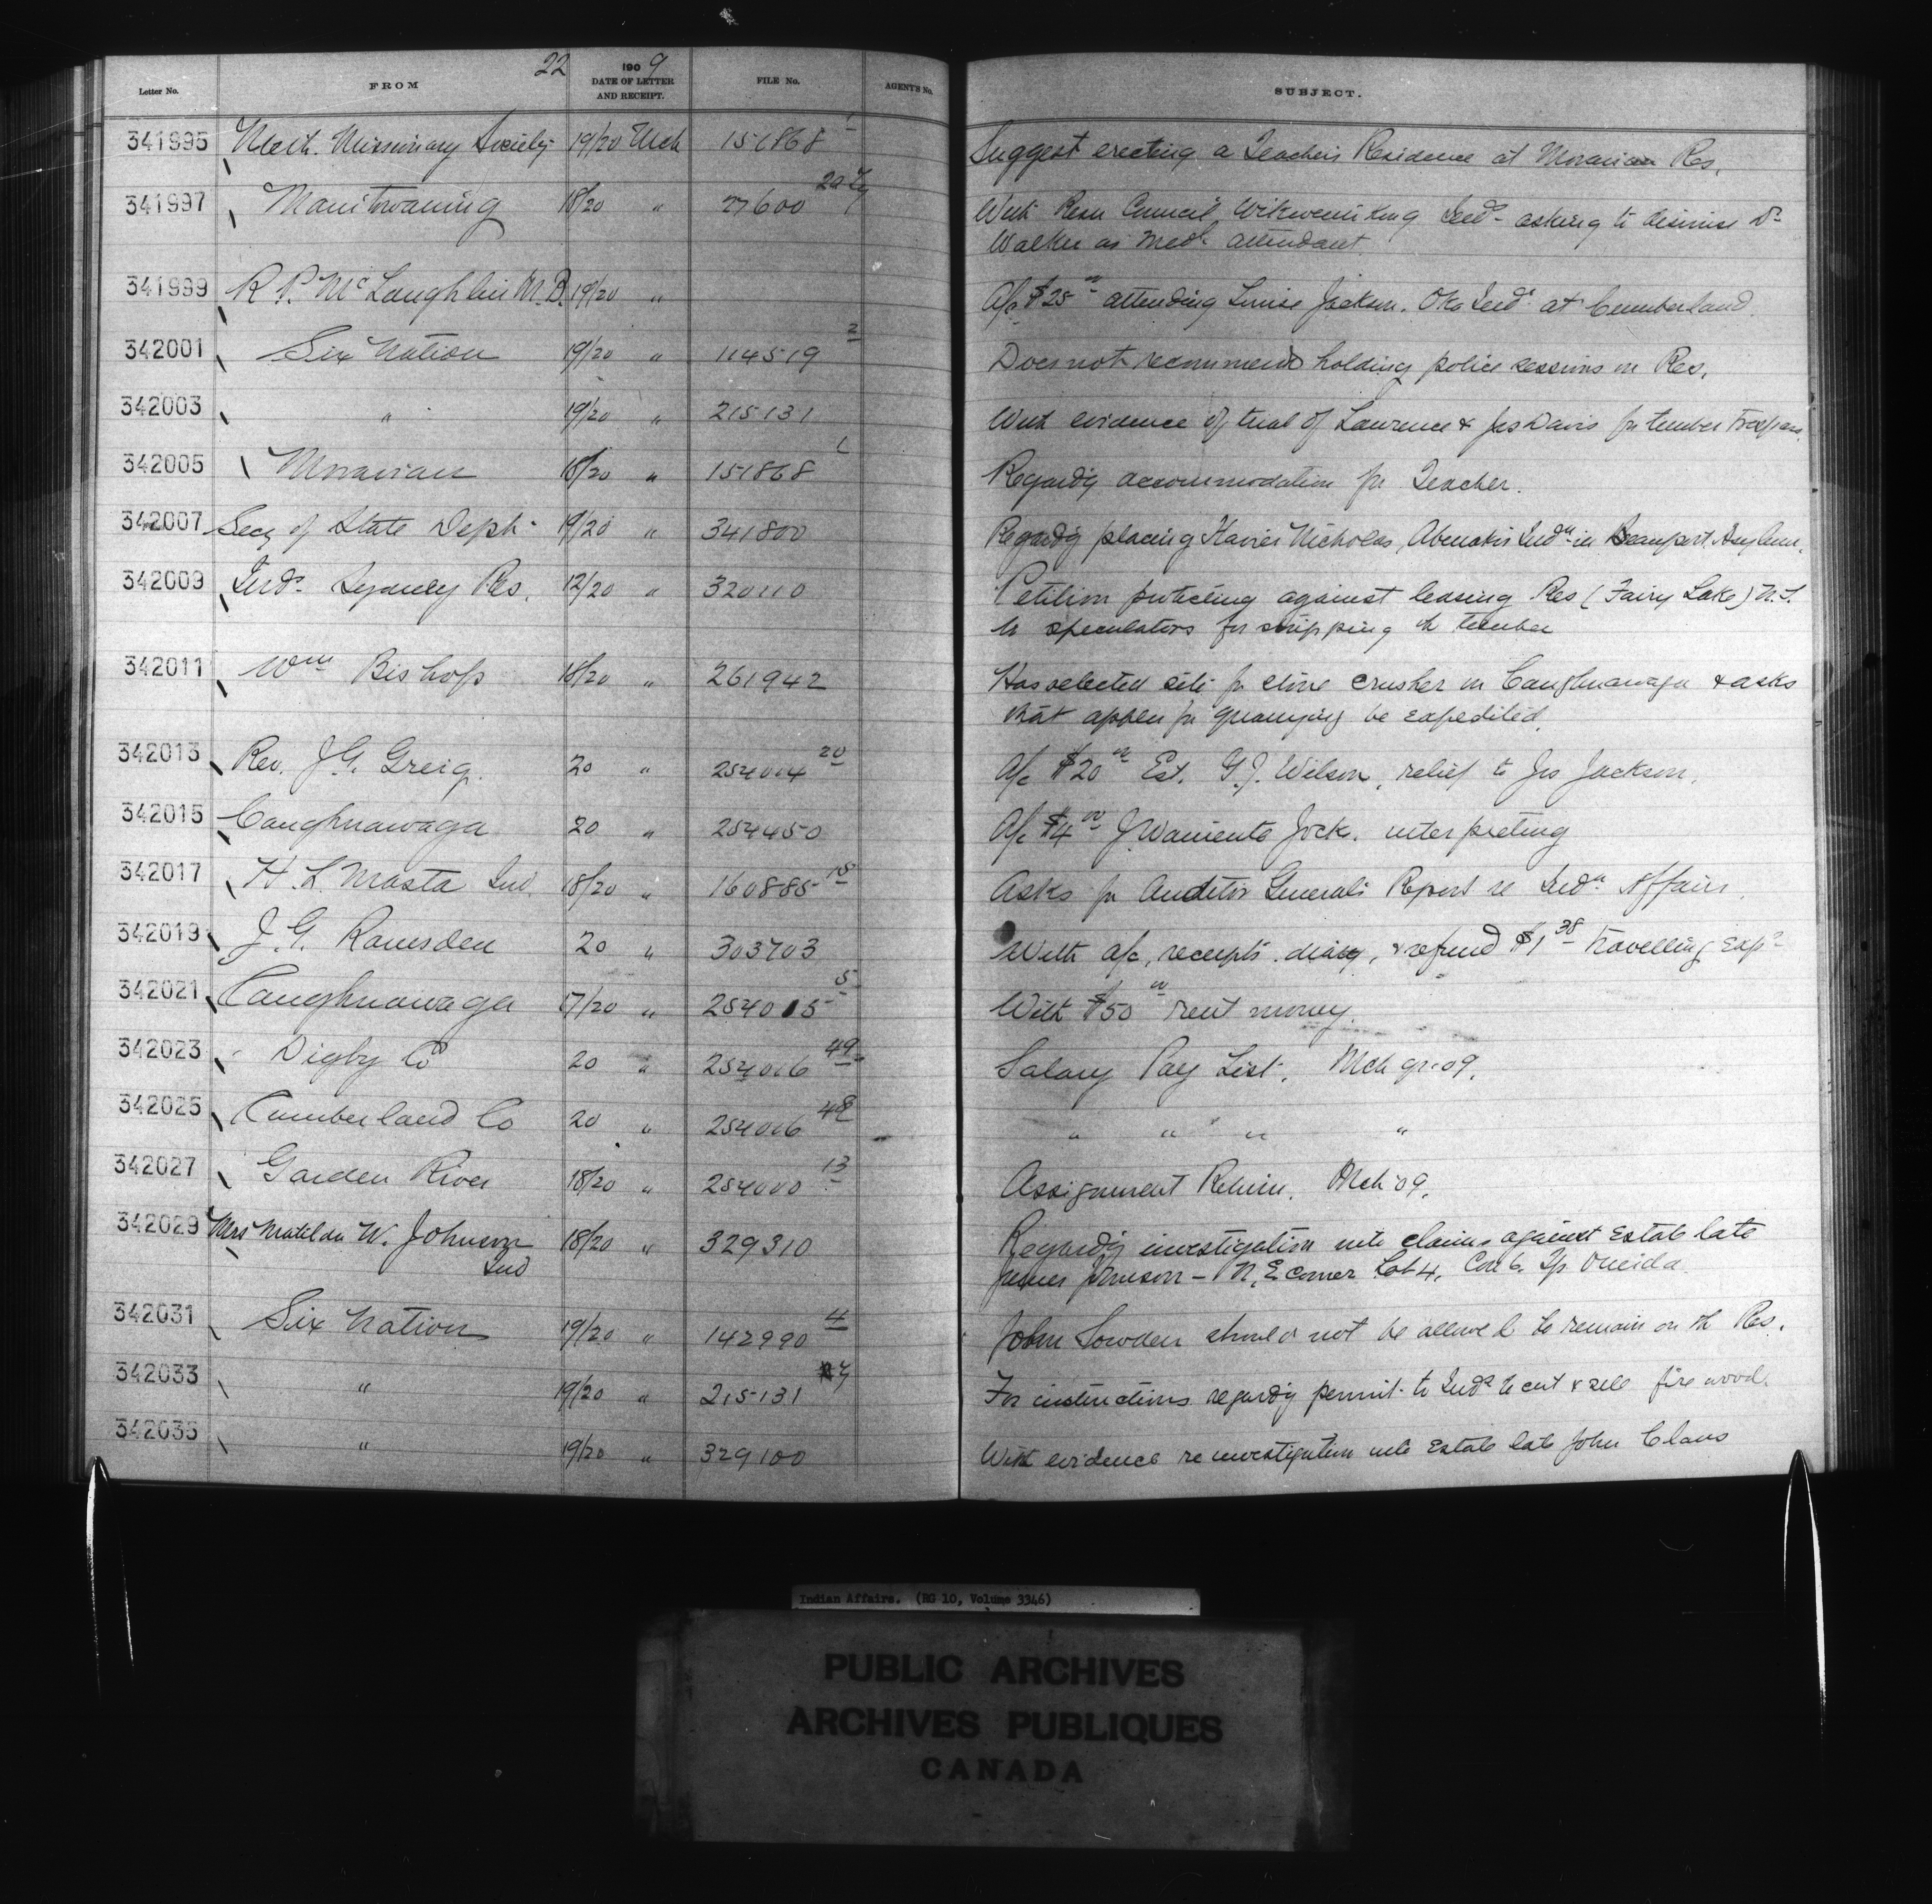 22
Letter No. FROM 1909 DATE OF LETTER AND RECEIPT. FILE No. AGENT'S No. SUBJECT.
341995 Meth. Missionary Society 19/20 Mch 151868 1 Suggest erecting a Teacher's Residence at Moravian Res.
341997 Manitowaning 18/20 " 27600 With Resn Council, Wikwemikong Inds asking to dismiss Dr
Walker as Medl attendant
341999 R. P. McLaughlin M.D. 19/20 " A/c $25 00 attending Louise Jackson. Oka Indn at Cumberland.
342001 Six Nation 19/20 " 114519 2 Does not recommend holding police sessions on Res.
342003 " 19/20 " 215131 With evidence of trial of Lawrence & Jas Davis for timber trespass.
342005 Moravian 18/20 " 151868 Regardg accommodation for Teacher.
342007 Secy of State Dept. 19/20 " 341800 Regardg placing Xavier Nicholas, Abenakis Indn in Beauport Asylum.
342009 Inds Sydney Res. 12/20 " 320110 Petition protesting against leasing Res (Fairy Lake) N.S.
to speculators for stripping of timber
342011 Wm Bishop 18/20 " 261942 Has selected site for stone crusher in Caughnawaga & asks
that appln for quarrying be expedited.
342013 Rev. J.G. Greig. 20 " 254004 20 A/c $20 00 Est. G.J. Wilson, relief to Jas Jackson.
342015 Caughnawaga 20 " 254450 A/c $4 00 J. Jock. interpreting
342017 H. L. Masta Ind. 18/20 " 160885 18 Asks for Auditor General's Report re Indn Affairs.
342019 J. G. Ramsden 20 " 303703 With a/c, receipts. diary, & refund $1 38 travelling exps
342021 Caughnawaga 17/20 " 254015 5 With $50 00 rent money.
342023 Digby Co 20 " 254006 49 Salary Pay List. Mch qr. 09.
342025 Cumberland Co 20 " 254006 48 " " " "
342027 Garden River 18/20 " 254000 13 Assignment Return. Mch 09.
342029 Mrs Matilda W. Johnson 18/20 " 329310 Regardg investigation into claims against Estate late
Ind James Johnson - N.E corner Lot 4, Con 6. Tp. Oneida.
342031 Six Nation 19/20 " 142990 4 John Lowden should not be allowed to remain on th Res.
342033 " 19/20 " 215131 For instructions regardg permit to Inds to cut & sell fire wood.
342035 " 19/20 " 329100 With evidence re investigation into Estate late John Claus
Indian Affairs. (RG 10, Volume 3346)
PUBLIC ARCHIVES
ARCHIVES PUBLIQUES
CANADA